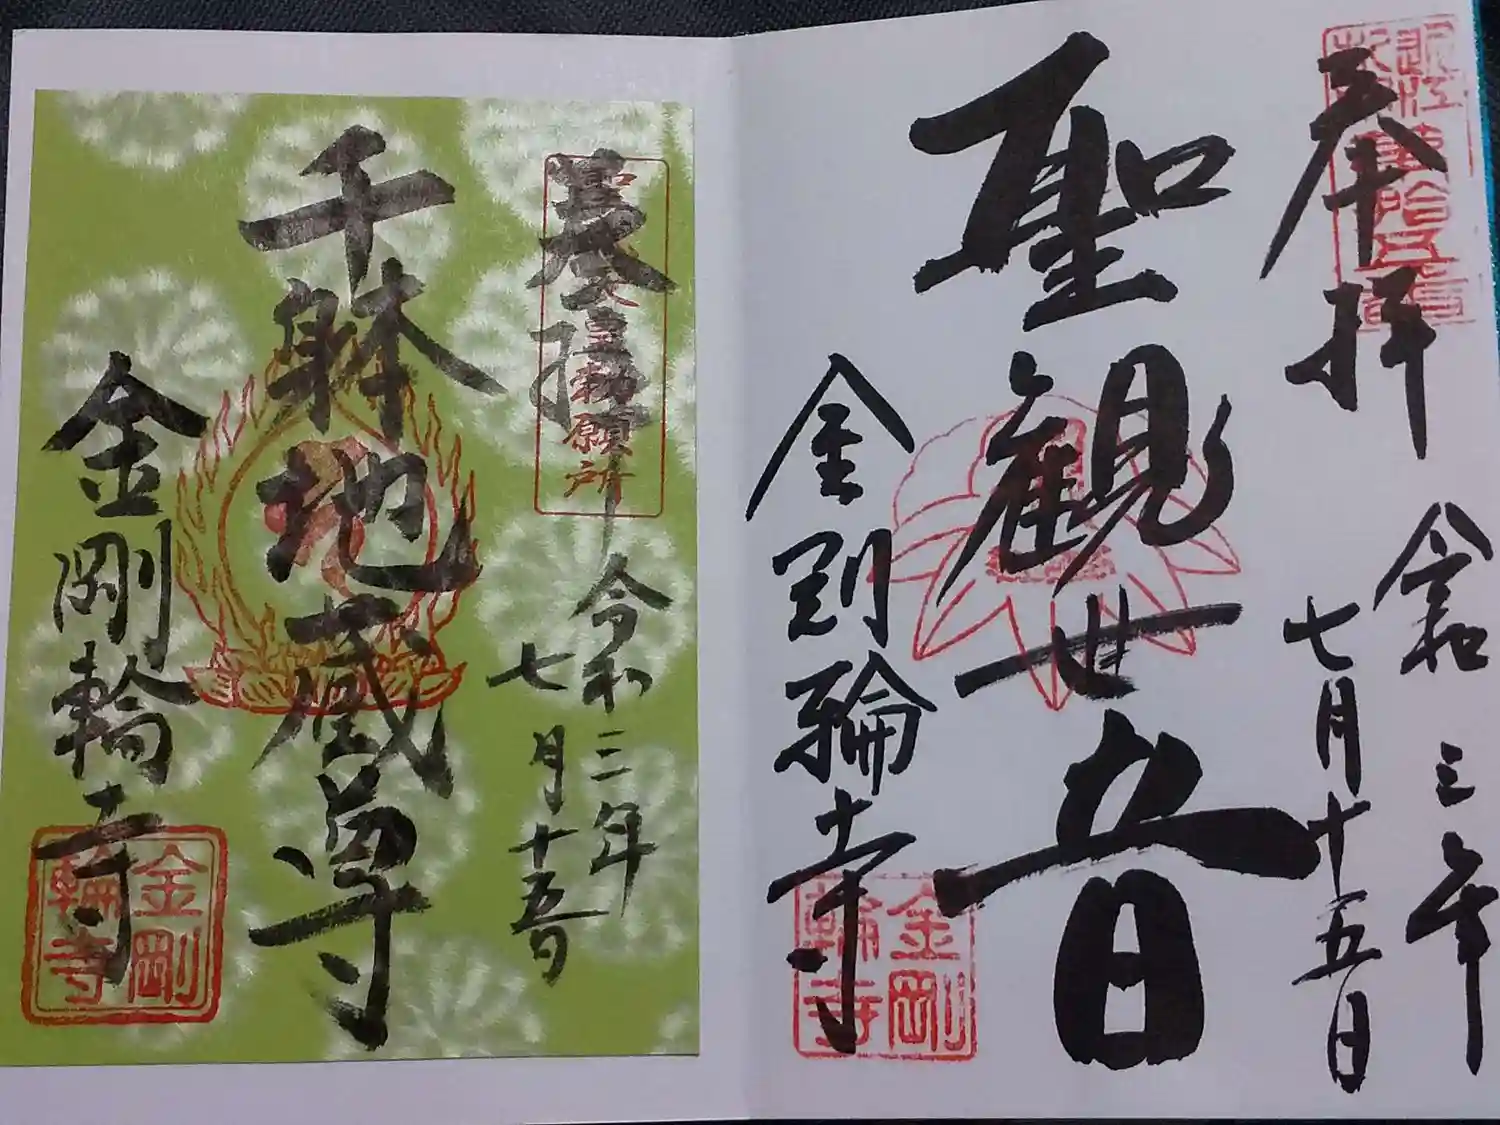 奉拝
令和三年
七月十五日
聖観世音
金剛輪寺
金剛
輪寺
奉拝
勅願所
令和三年
七月十五日
千躰地蔵尊
金剛輪寺
金剛
輪寺